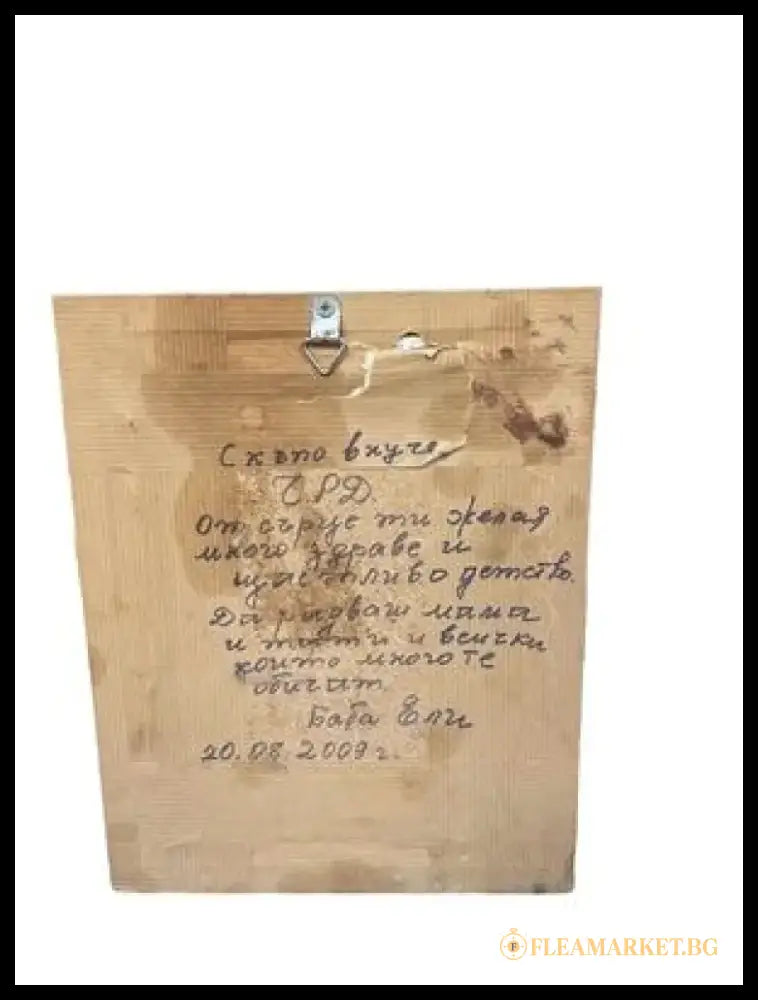 Скъпо внуче,
Ч.Р.Д.
От сърце ти желая
много здраве и
щастливо детство.
Да радваш мама
и тати и всички
които много те
обичат.
Баба Ели
20.08.2009 г.
FLEAMARKET.BG